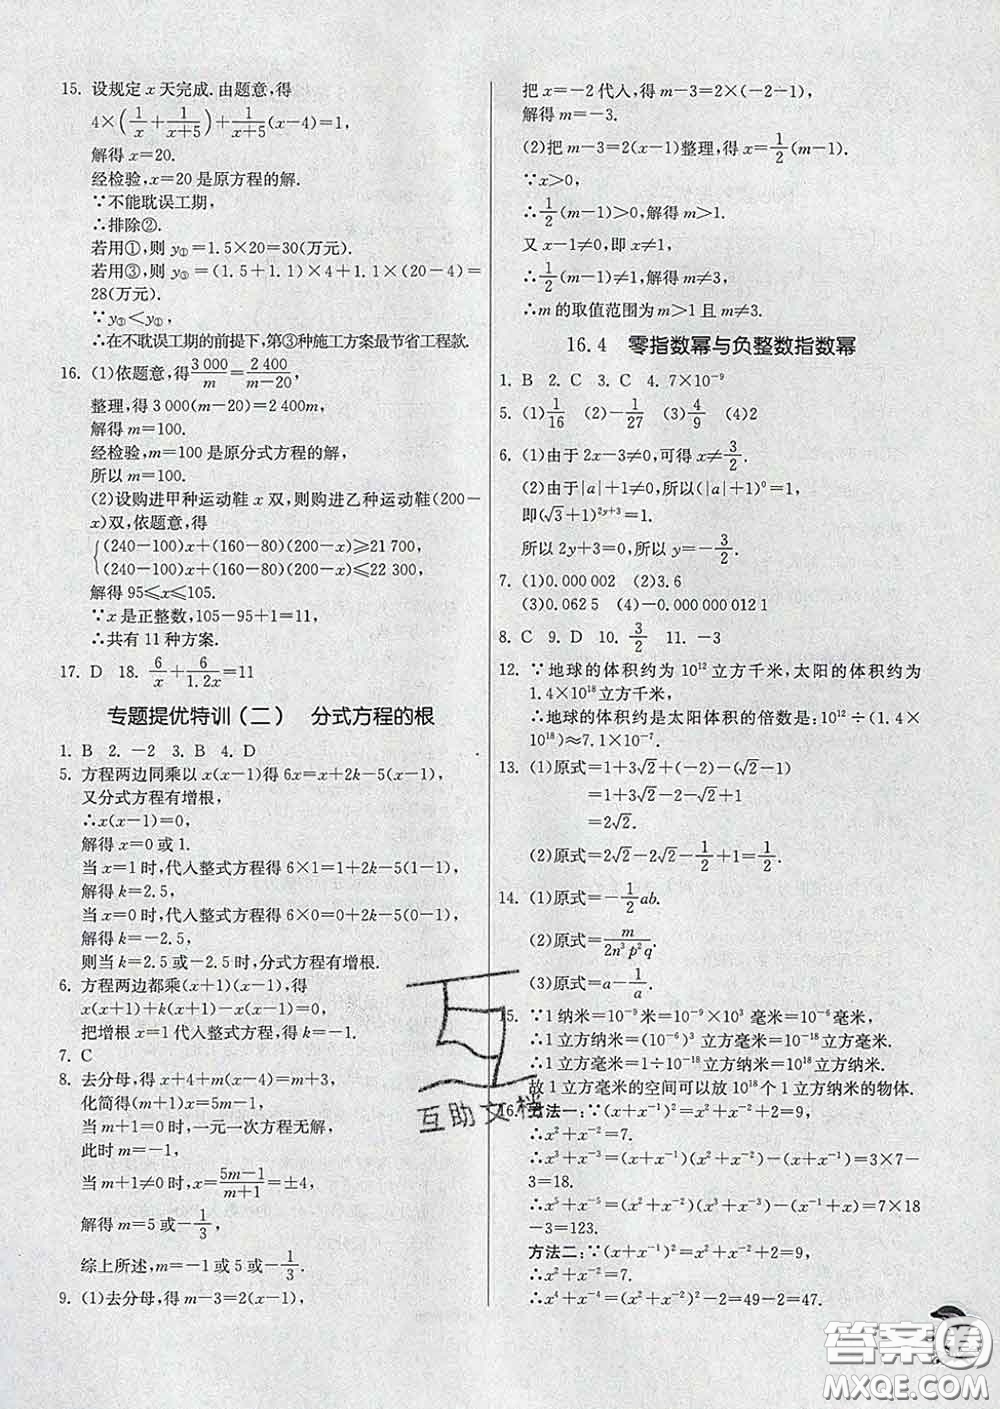 15. 设规定 x 天完成. 由题意, 得
4×(1/x+1/(x+5))+1/(x+5)(x−4)=1,
解得 x=20.
经检验, x=20 是原方程的解.
∵不能耽误工期,
∴排除②.
若用①, 则 y①=1.5×20=30(万元).
若用③, 则 y③=(1.5+1.1)×4+1.1×(20−4)=
28(万元).
∵y③<y①,
∴在不耽误工期的前提下, 第③种施工方案最节省工程款.
16. (1)依题意, 得3 000/m=2 400/(m−20),
整理, 得 3 000(m−20)=2 400m,
解得 m=100.
经检验, m=100 是原分式方程的解,
所以 m=100.
(2)设购进甲种运动鞋 x 双, 则购进乙种运动鞋(200−
x)双, 依题意, 得
{(240−100)x+(160−80)(200−x)≥21 700,
(240−100)x+(160−80)(200−x)≤22 300,
解得 95≤x≤105.
∵x 是正整数, 105−95+1=11,
∴共有 11 种方案.
17. D 18. 6/x+6/1.2x=11
专题提优特训(二) 分式方程的根
1. B 2. −2 3. B 4. D
5. 方程两边同乘以 x(x−1)得 6x=x+2k−5(x−1),
又分式方程有增根,
∴x(x−1)=0,
解得 x=0 或 1.
当 x=1 时, 代入整式方程得 6×1=1+2k−5(1−1),
解得 k=2.5,
当 x=0 时, 代入整式方程得 6×0=0+2k−5(0−1),
解得 k=−2.5,
则当 k=2.5 或−2.5 时, 分式方程有增根.
6. 方程两边都乘(x+1)(x−1), 得
x(x+1)+k(x+1)−x(x−1)=0,
把增根 x=1 代入整式方程, 得 k=−1.
7. C
8. 去分母, 得 x+4+m(x−4)=m+3,
化简得(m+1)x=5m−1,
当 m+1=0 时, 一元一次方程无解,
此时 m=−1,
当 m+1≠0 时, x=(5m−1)/(m+1)=±4,
解得 m=5 或−1/3,
综上所述, m=−1 或 5 或−1/3.
9. (1)去分母, 得 m−3=2(x−1),
把 x=−2 代入, 得 m−3=2×(−2−1),
解得 m=−3.
(2)把 m−3=2(x−1)整理, 得 x=1/2(m−1).
∵x>0,
∴1/2(m−1)>0, 解得 m>1.
又 x−1≠0, 即 x≠1,
∴1/2(m−1)≠1, 解得 m≠3,
∴m 的取值范围为 m>1 且 m≠3.
16.4 零指数幂与负整数指数幂
1. B 2. C 3. C 4. 7×10⁻⁹
5. (1)1/16 (2)−1/27 (3)4/9 (4)2
6. (1)由于 2x−3≠0, 可得 x≠3/2.
(2)由于|a|+1≠0, 所以(|a|+1)⁰=1,
即(√3+1)^(2y+3)=1.
所以 2y+3=0, 所以 y=−3/2.
7. (1)0.000 002 (2)3.6
(3)0.062 5 (4)−0.000 000 012 1
8. C 9. D 10. 3/2 11. −3
12. ∵地球的体积约为 10¹² 立方千米, 太阳的体积约为
1.4×10¹⁸ 立方千米,
∴地球的体积约是太阳体积的倍数是: 10¹²÷(1.4×
10¹⁸)≈7.1×10⁻⁷.
13. (1)原式=1+3√2+(−2)−(√2−1)
=1+3√2−2−√2+1
=2√2.
(2)原式=2√2−2√2−1/2+1=1/2.
14. (1)原式=−1/2ab.
(2)原式=m/(2n³p²q).
(3)原式=a−1/a.
15. ∵1 纳米=10⁻⁹ 米=10⁻⁹×10³ 毫米=10⁻⁶ 毫米,
∴1 立方纳米=(10⁻⁶)³ 立方毫米=10⁻¹⁸ 立方毫米.
∴1 立方毫米=1÷10⁻¹⁸ 立方纳米=10¹⁸ 立方纳米.
故 1 立方毫米的空间可以放 10¹⁸ 个 1 立方纳米的物体.
16. 方法一: ∵(x+x⁻¹)²=x²+x⁻²+2=9,
∴x²+x⁻²=7.
∴x³+x⁻³=(x+x⁻¹)(x²+x⁻²)−(x+x⁻¹)=3×7−
3=18.
∴x⁵+x⁻⁵=(x²+x⁻²)(x³+x⁻³)−(x⁻¹+x)=7×18
−3=123.
方法二: ∵(x+x⁻¹)²=x²+x⁻²+2=9,
∴x²+x⁻²=7.
∴x⁴+x⁻⁴=(x²+x⁻²)²−2=49−2=47.
互助文档
答案卷
MXQE.COM